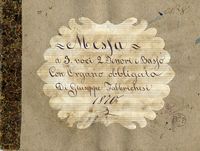 Messa
a 3. voci 2 Tenori e Basso
Con Organo obbligato
Di Giuseppe Fabbrichesi
1870